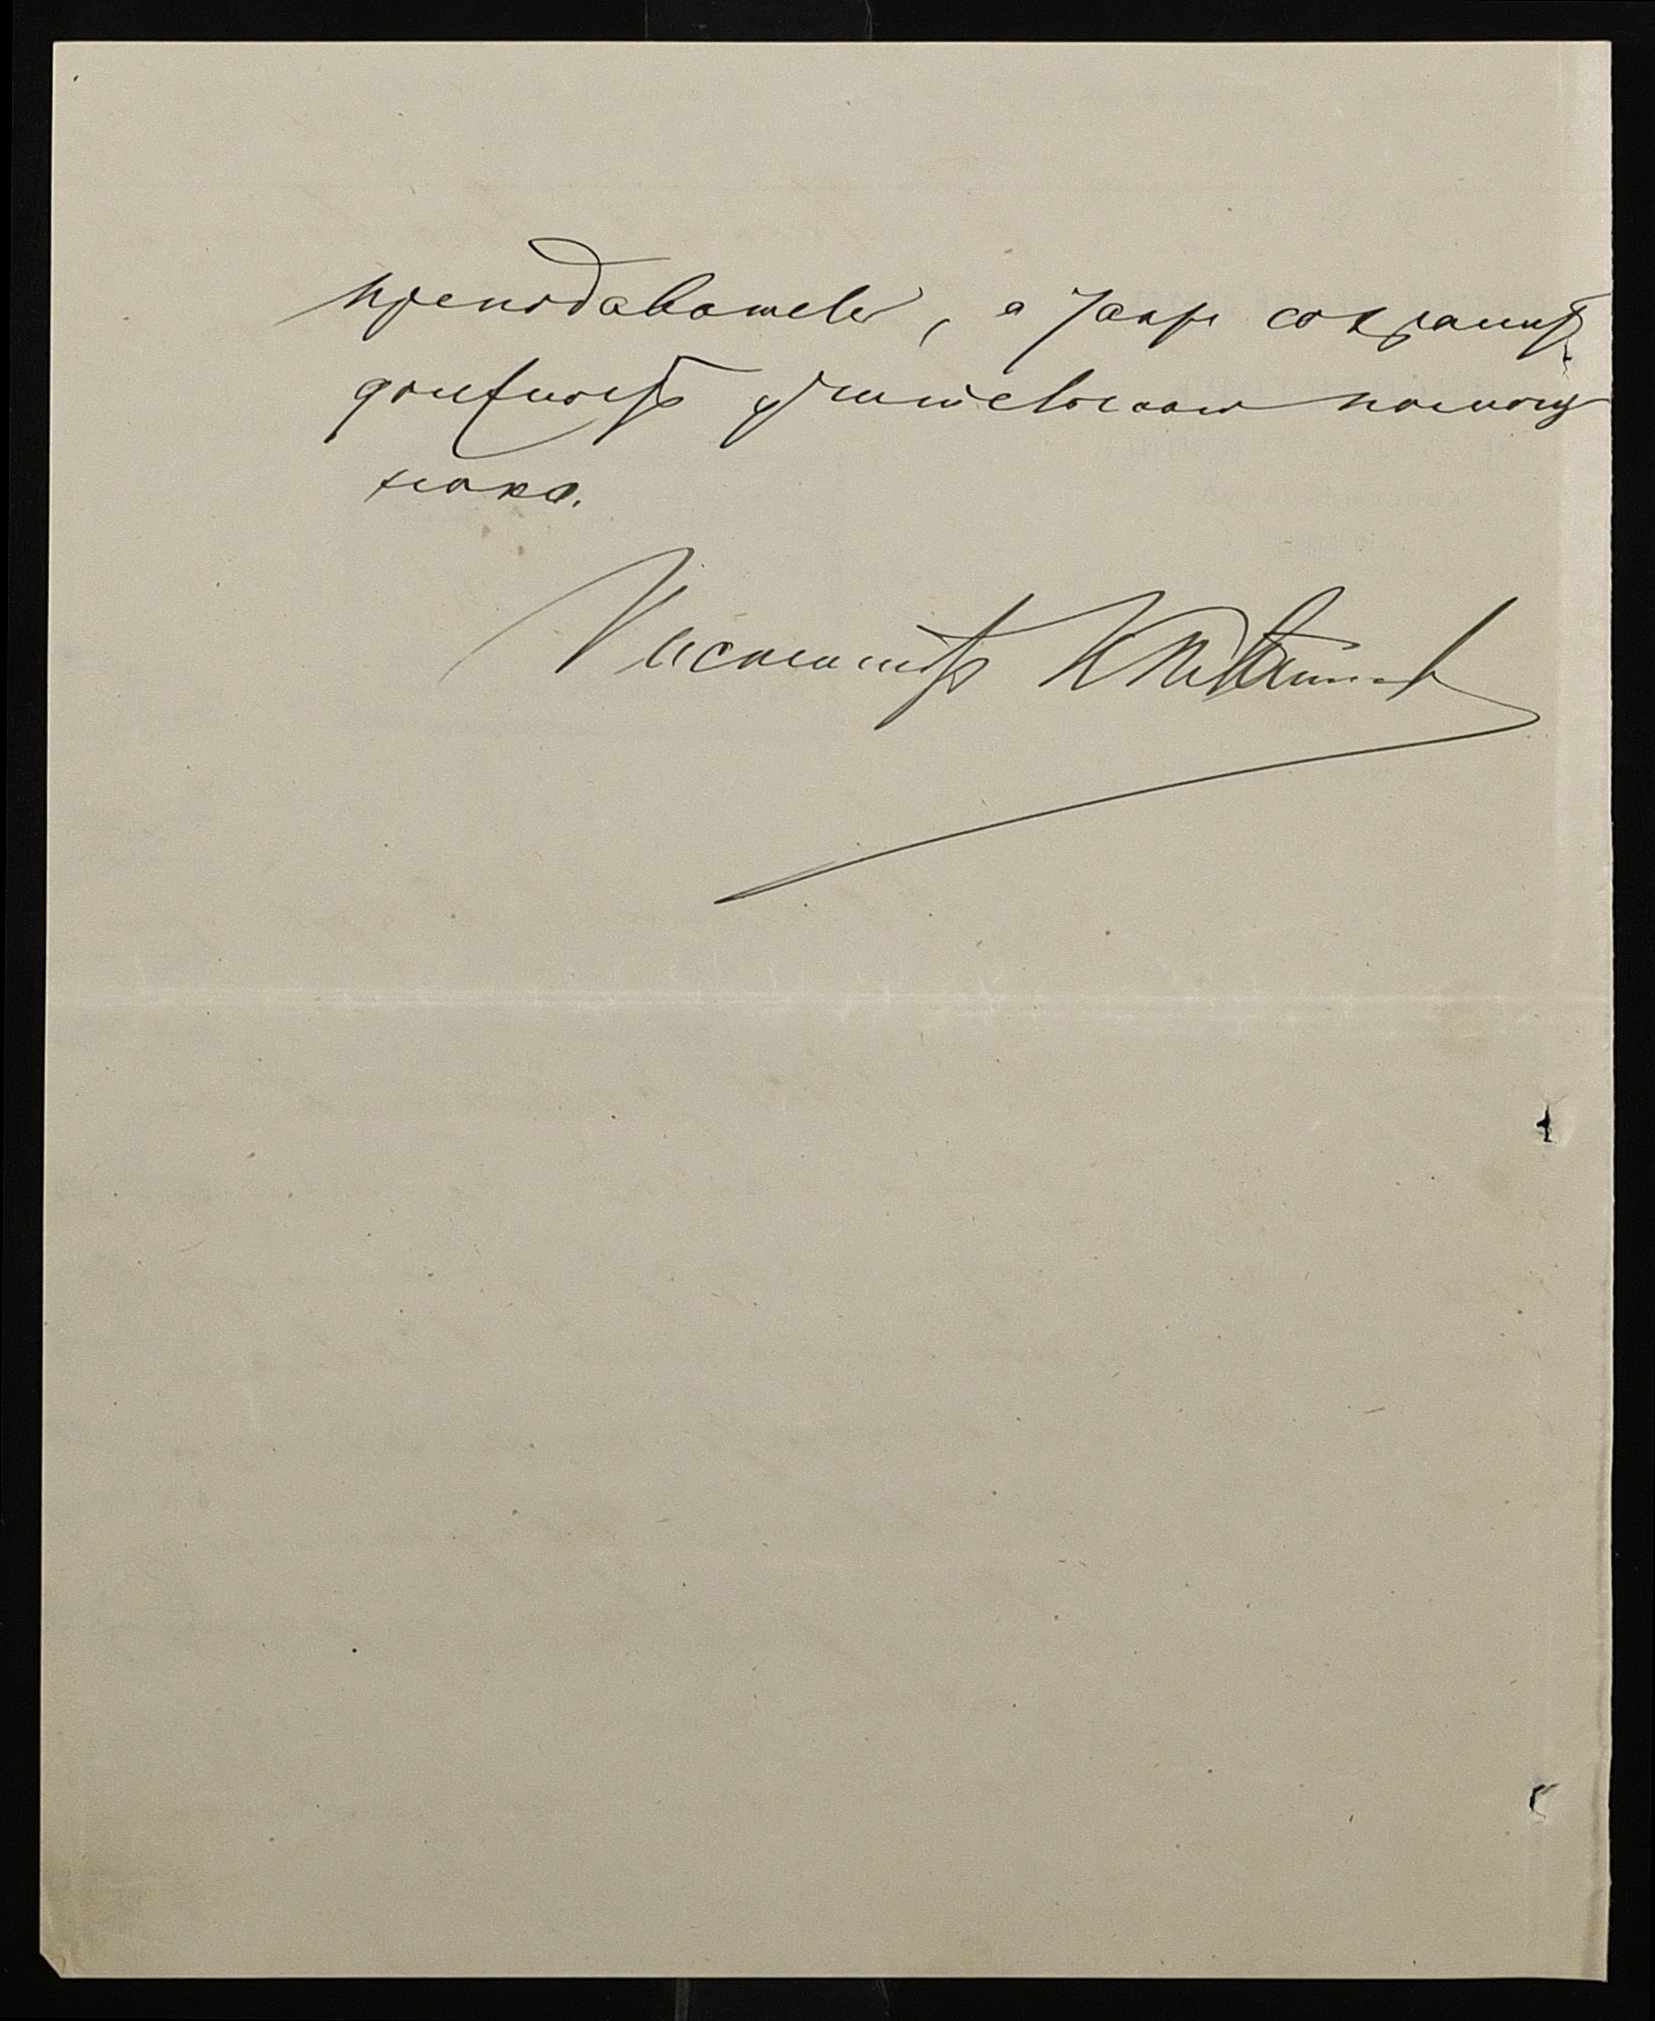 преподавателей, а также сохранить
должность учительскаго помощ
ника.
Инспекторъ К.